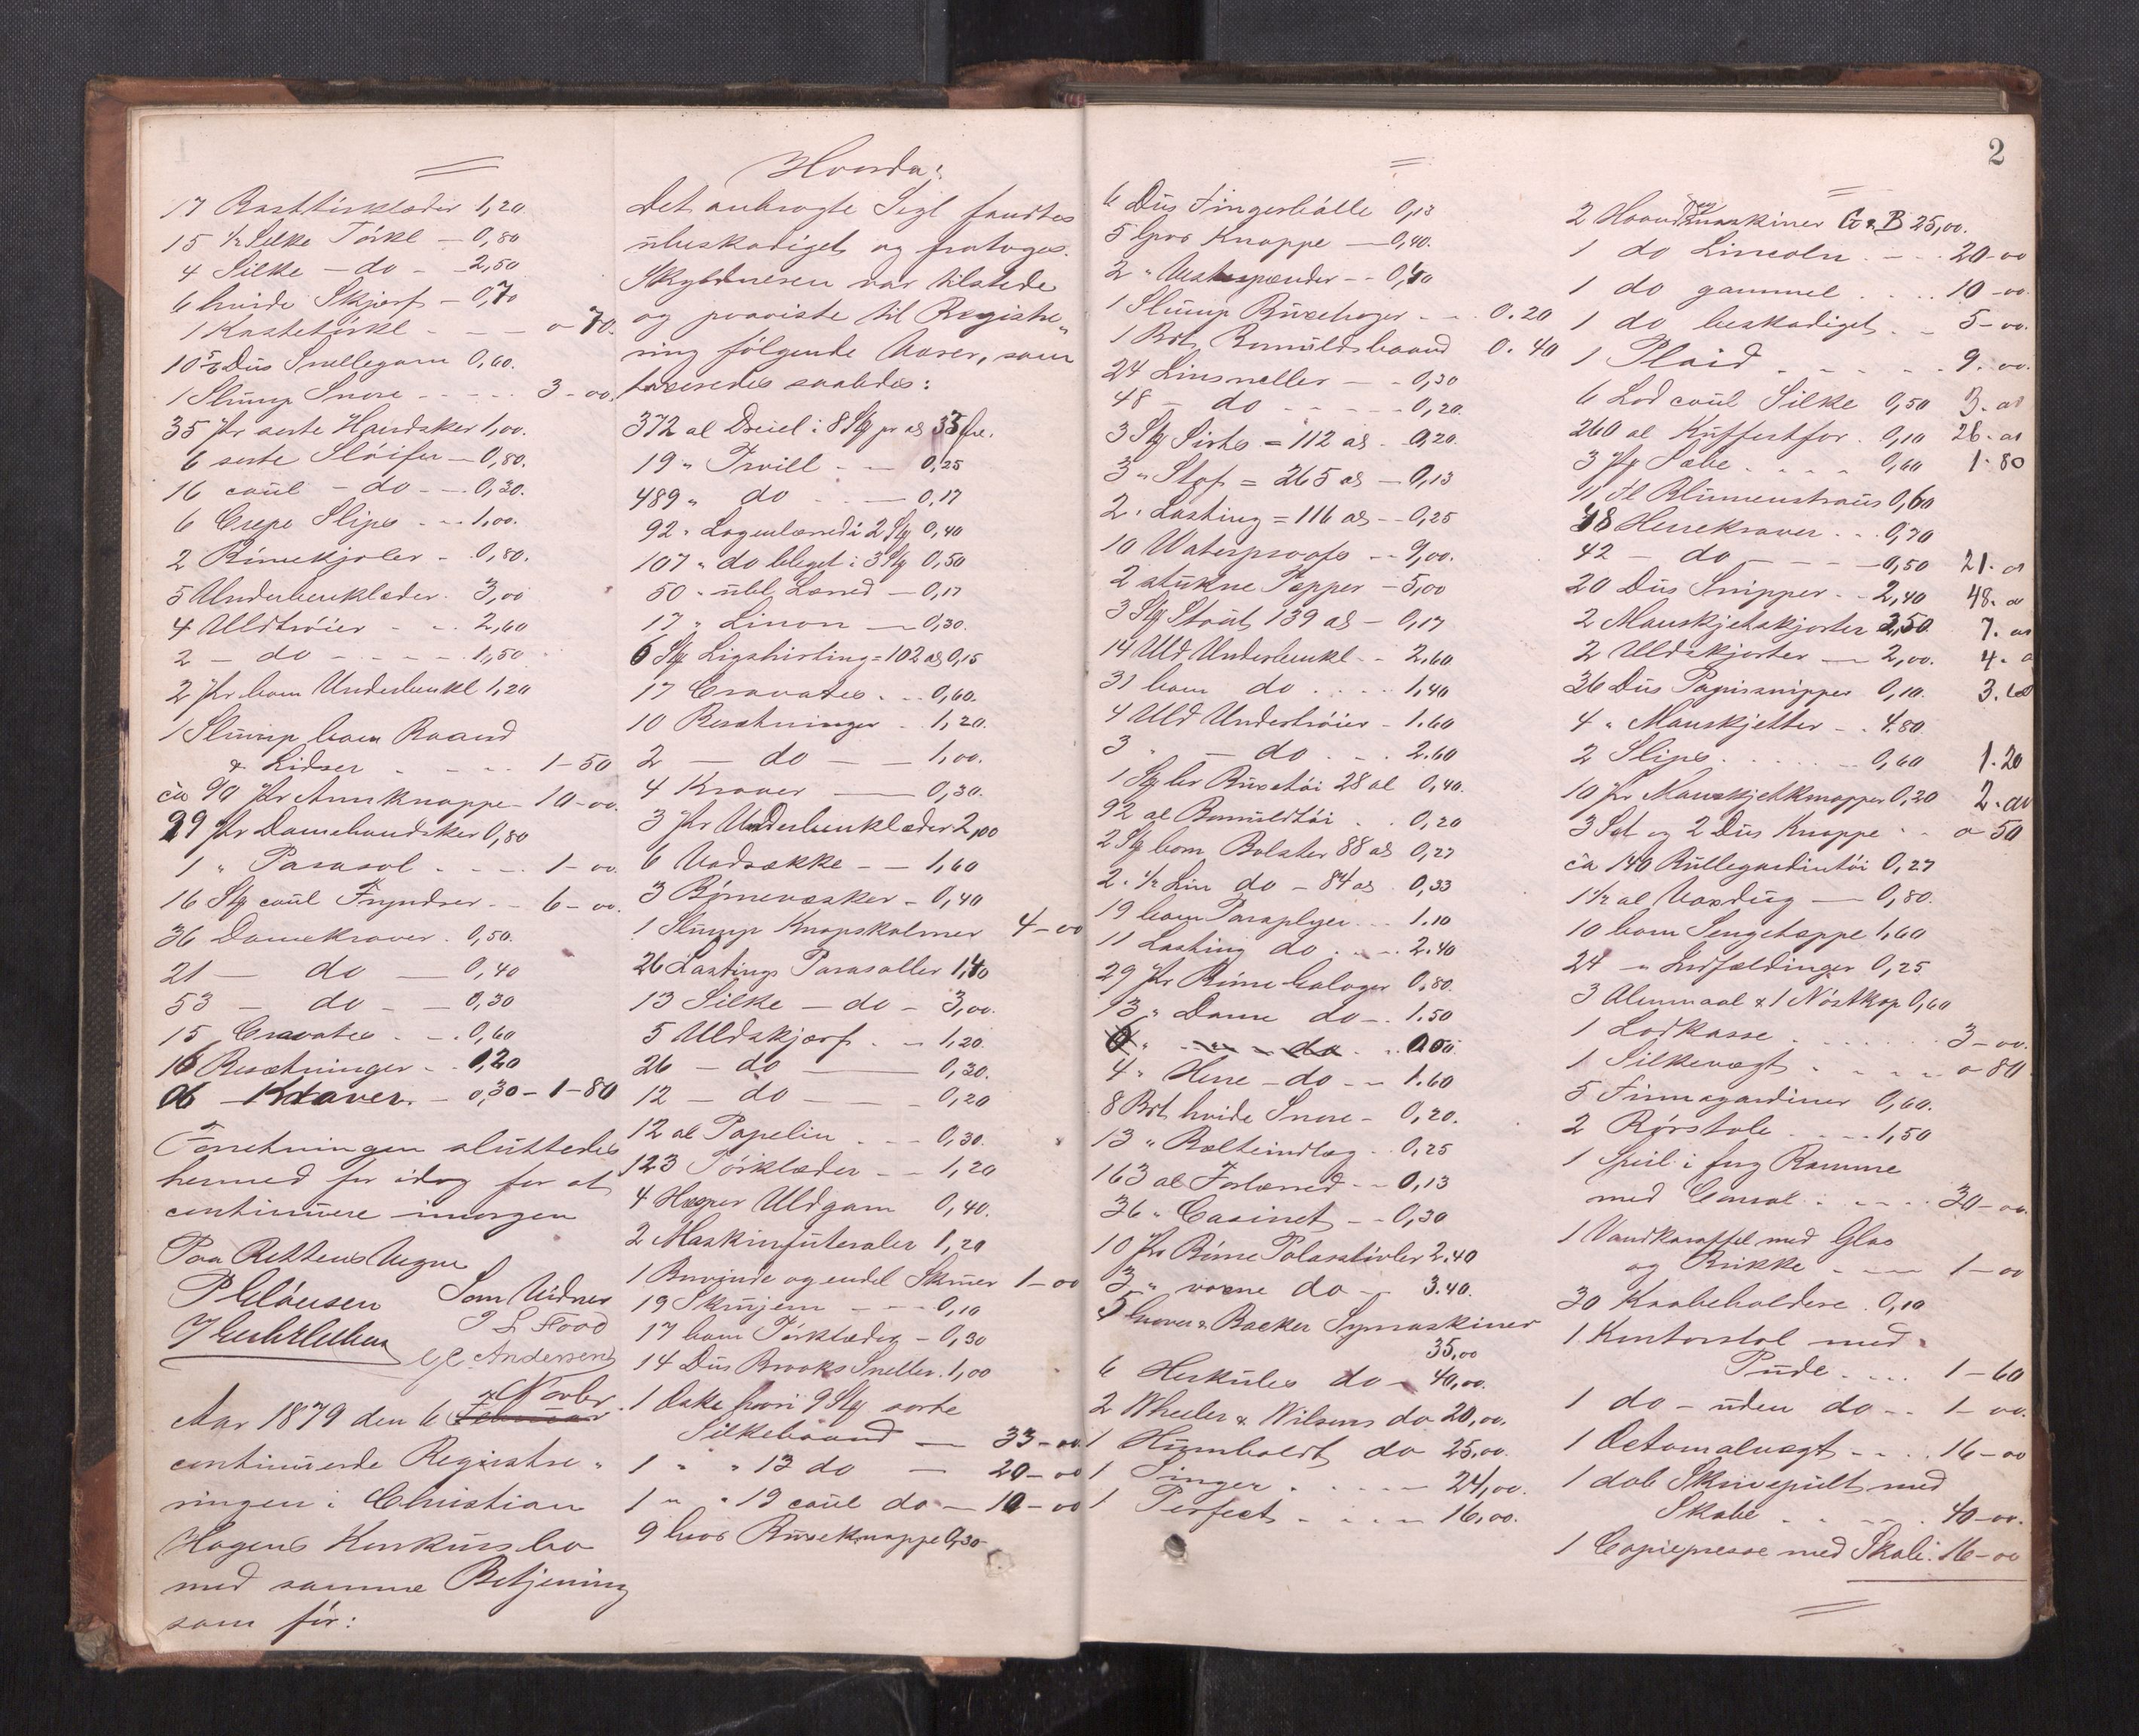 17 Rasttörklæder 1,20
15 1/2 Silke Törkl — 0,80
4 Silke — do — 2,50
6 hvide Skjærf — 0,70
1 Kastetörkl - - — 0-70.
10 5/6 Dus Snellegarn 0,60.
1 Slump Snore - - - - 3-00.
35 Pr sorte Handsker 1,00.
6 sorte Slöifer — 0,80.
16 coul — do — 0,30.
6 Crepe Slips - - 1,00.
2 Börnekjoler - 0,80.
5 Underbenklæder. 3,00
4 Uldtröier - - 2,60
2 — do - - - - 1,50
2 Pr bom Underbenkl 1,20
1 Slump bom Baand
& Lidser - - - - 1-50
ca 90 Pr Armknappe - 10-00.
29 Pr Damehandsker 0,80
1 " Parasol - - - - 1-00
16 Stg coul Fryndser - - 6-00.
36 Damekraver. 0,50.
21 — do — 0,40
53 — do — 0,30
15 Cravater - - 0,60
16 Besætninger - - 1,20
06 — Kraver. - 0,30 - 1-80
Forretningen sluttedes
hermed for idag for at
continuere imorgen
Paa Rettens Vegne
P Clausen Som Vidner
P L Flood
C C Andersen
Aar 1879 den 6 Novbr
continuerede Registre-
ringen i Christian
Hagens Konkursbo
med samme Betjening
som för:
Hvorda:
Det anbragte Segl fandtes
ubeskadiget og fratoges.
Skyldneren var tilstede
og paaviste til Registre-
ring fölgende Varer, som
taxeredes saaledes:
372 al Dreiel i 8 Stg pr al 35 Öre.
19 " Tvill - — 0,25
489 " do - — 0,17
92 " Lagenlærred i 2 Stg 0,40
107 " do bleget i 3 Stg 0,50
50 " ubl Lærred — 0,17
17 " Linon — 0,30.
6 Stg Ligshirting = 102 al 0,15
17 Cravates. - - 0,60.
10 Besætninger - 1,20.
2 — do — 1,00.
4 Kraver — 0,30.
3 Pr Underbenklæder 2,00
6 Vadsække - — 1,60
3 Börnevæsker - 0,40
1 Slump Knapskalmer 4-00
26 Lastings Parasoller 1,40
13 Silke — do - 3,00.
5 Uldskjærf. - - 1,20.
26 — do — 0,30.
12 — do — 0,20
12 al Papelin - - 0,30.
123 Törklæder - - 1,20
4 Hesper Uldgarn 0,40.
2 Maskinfuteraler 1,20
1 og endel Skruer 1-00
19 Skrujern - - - 0,10
17 bom Törklæder - 0,30
14 Dus Brooks Sneller. 1,00
1 Æske hvori 9 Stg sorte
Silkebaand — 33-00.
1 " " 13 do — 20-00
1 " " 19 coul do — 10-00
9 Gros Buxeknappe 0,30
2
6 Dus Fingerbölle 0,13
5 Gros Knappe — 0,40.
2 " Vestespænder - - 0,40
1 Slump Buxehager - - 0.20
1 Brt. Bomuldsbaand 0.40
24 Linsneller — - 0,30
48 — do - - - - 0,20.
3 Stg Sirts = 112 al - 0,20.
3 " Stof = 265 al — 0,13
2 " Lasting = 116 al - - 0,25
10 Waterproofs - - 9,00.
2 stukne Tepper - 5,00
3 Stg Stout 139 al - 0,17
14 Uld Underbenkl - - 2.60
31 bom do . . . . 1,40
4 Uld Undertröier - 1.60
3 " — do . . . 2.60
1 Stg br Buxetöi 28 al 0,40.
92 al Bomuldtöi . . 0,20
2 Stg bom Bolster 88 al 0,27
2 " 1/2 Lin do — 84 al . 0,33
19 bom Paraplyer - - 1.10
11 Lasting do . . - . 2.40
29 Pr Börne Galoger 0,80.
13 " Dame do - . 1.50
4 " Herre - do - - 1.60
8 Brt hvide Snore - 0,20.
13 " Belteindlæg - . 0,25
163 al Forlærred - - 0,13
36 " Casinet - - 0,30
10 Pr. Börne Pelsstövler 2.40
3 " voxne do — 3.40.
5 Grover & Backer Symaskiner
35,00
6 Herkules do - 40,00.
2 Wheeler & Wilsons do 20,00.
1 Humboldt do 25,00.
1 Singer . . . . . - 24,00.
1 Perfect - . . . - 16,00.
2 Haandsymaskiner G & B 25,00.
1 do Lincoln . - - . 20-00
1 do gammel . . . . 10-00.
1 do beskadiget . - 5-00.
1 Plaid . - . - . - . 9.00.
6 Lod coul Silke 0,50 3.00
260 al Kuffertfor . 0,10 26.00
3 Sæbe . . . . 0,60 1.80
11 Fl 0,60
48 Herrekraver . . . 0,70
42 — do — - - - 0,50 21.00
20 Dus Snipper . - 2,40 48.00
2 Manskjetskjorter 3,50. 7.00
2 Uldskjorter — 2,00. 4.00
36 Dus Papirsnipper 0,10. 3.60
4 " Manskjetter - . 4.80.
2 Slips. . . . . . - 0,60 1.20
10 Pr Manskjetknapper 0,20 2.00
3 Set og 2 Dus Knappe - - 0-50
ca 140 Rullegardintöi 0,27
1 1/2 al Voxdug — 0,80.
10 bom Sengetæppe 1,60
24 " 0,25
3 Alenmaal & 1 Nöstkop 0,60
1 Lodkasse . . . . . . . 3-00.
1 Silkevægt . . . . . 0-80
5 Finnegardiner 0,60.
2 Rörstole . . . . - 1,50
1 Speil i fug Ramme
med Consol . . - . . 30-00.
1 Vandkaraffel med Glas
og Brikke . - — 1-00
30 Kaabeholdere . 0,10
1 Kontorstol med
Pude . . . . 1-60
1 do - uden do - - 1-00.
1 Decimalvægt - - . . 16-00
1 dob Skrivepult med
Skabe . . . - . . 40-00.
1 Copiepresse med Skab. 16-00